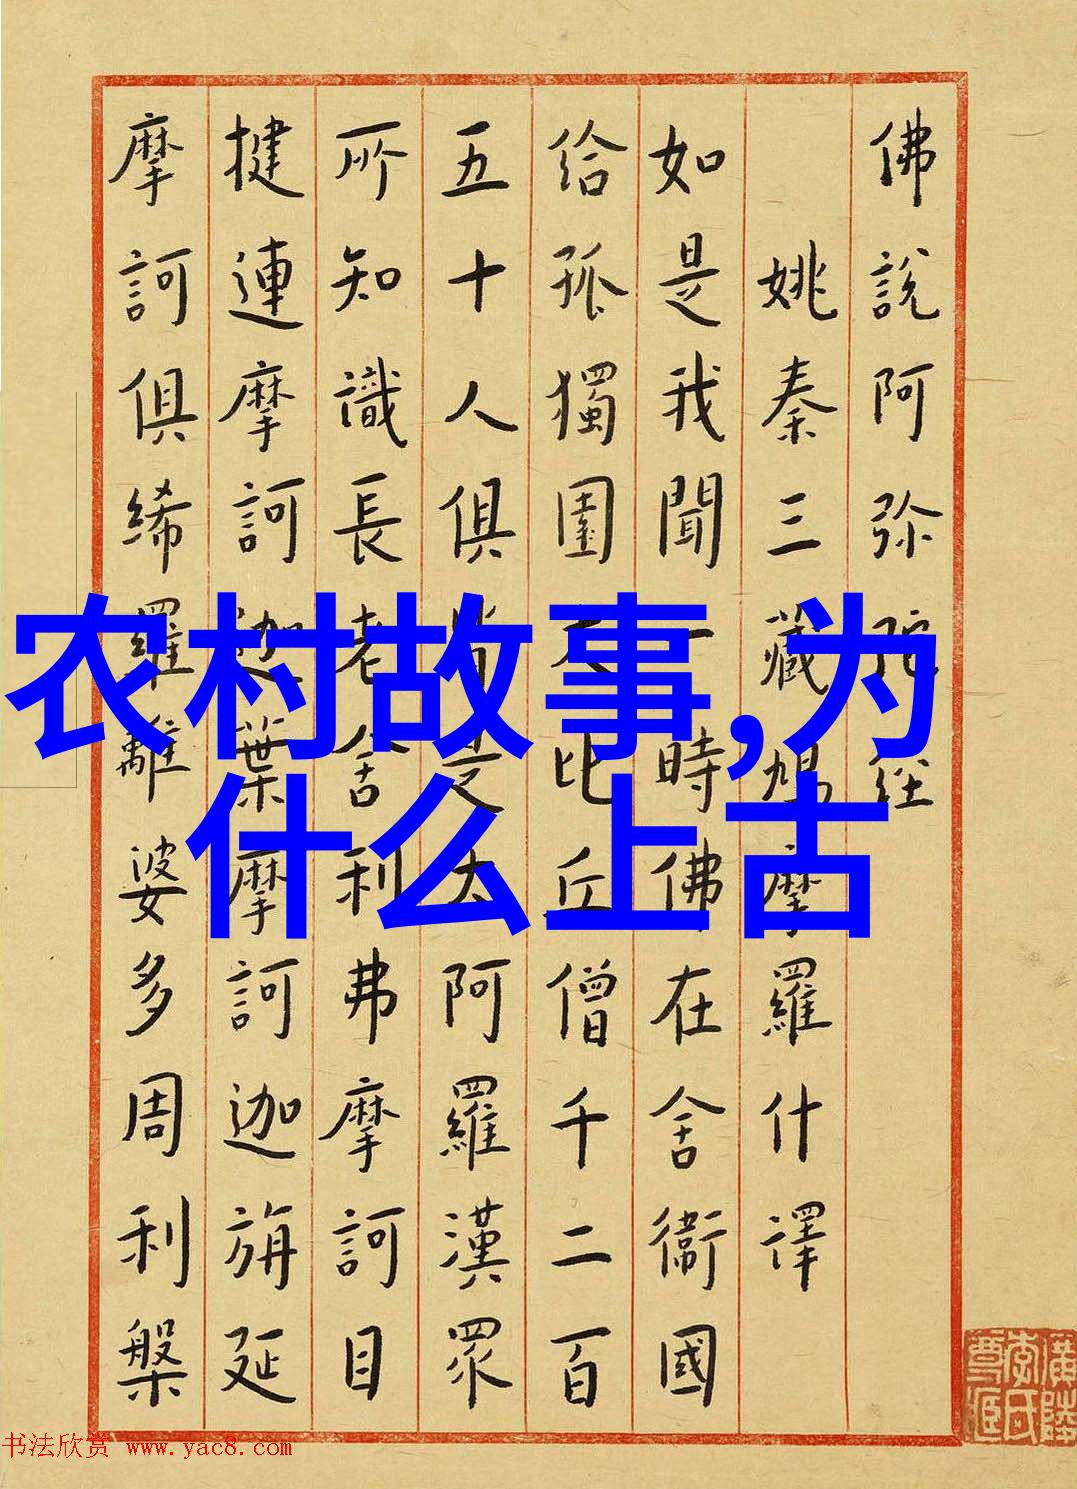 佛說阿弥陀經
姚秦三藏鳩摩羅什譯
如是我聞一時佛在舍衞國
給孤獨園大比丘僧千二百
五十人俱皆是大阿羅漢眾
所知識長老舍利弗摩訶目
揵連摩訶迦葉摩訶迦旃延
摩訶俱絺羅離婆多周利槃
农村故事,为
什么上古
书法欣赏 www.yac8.com